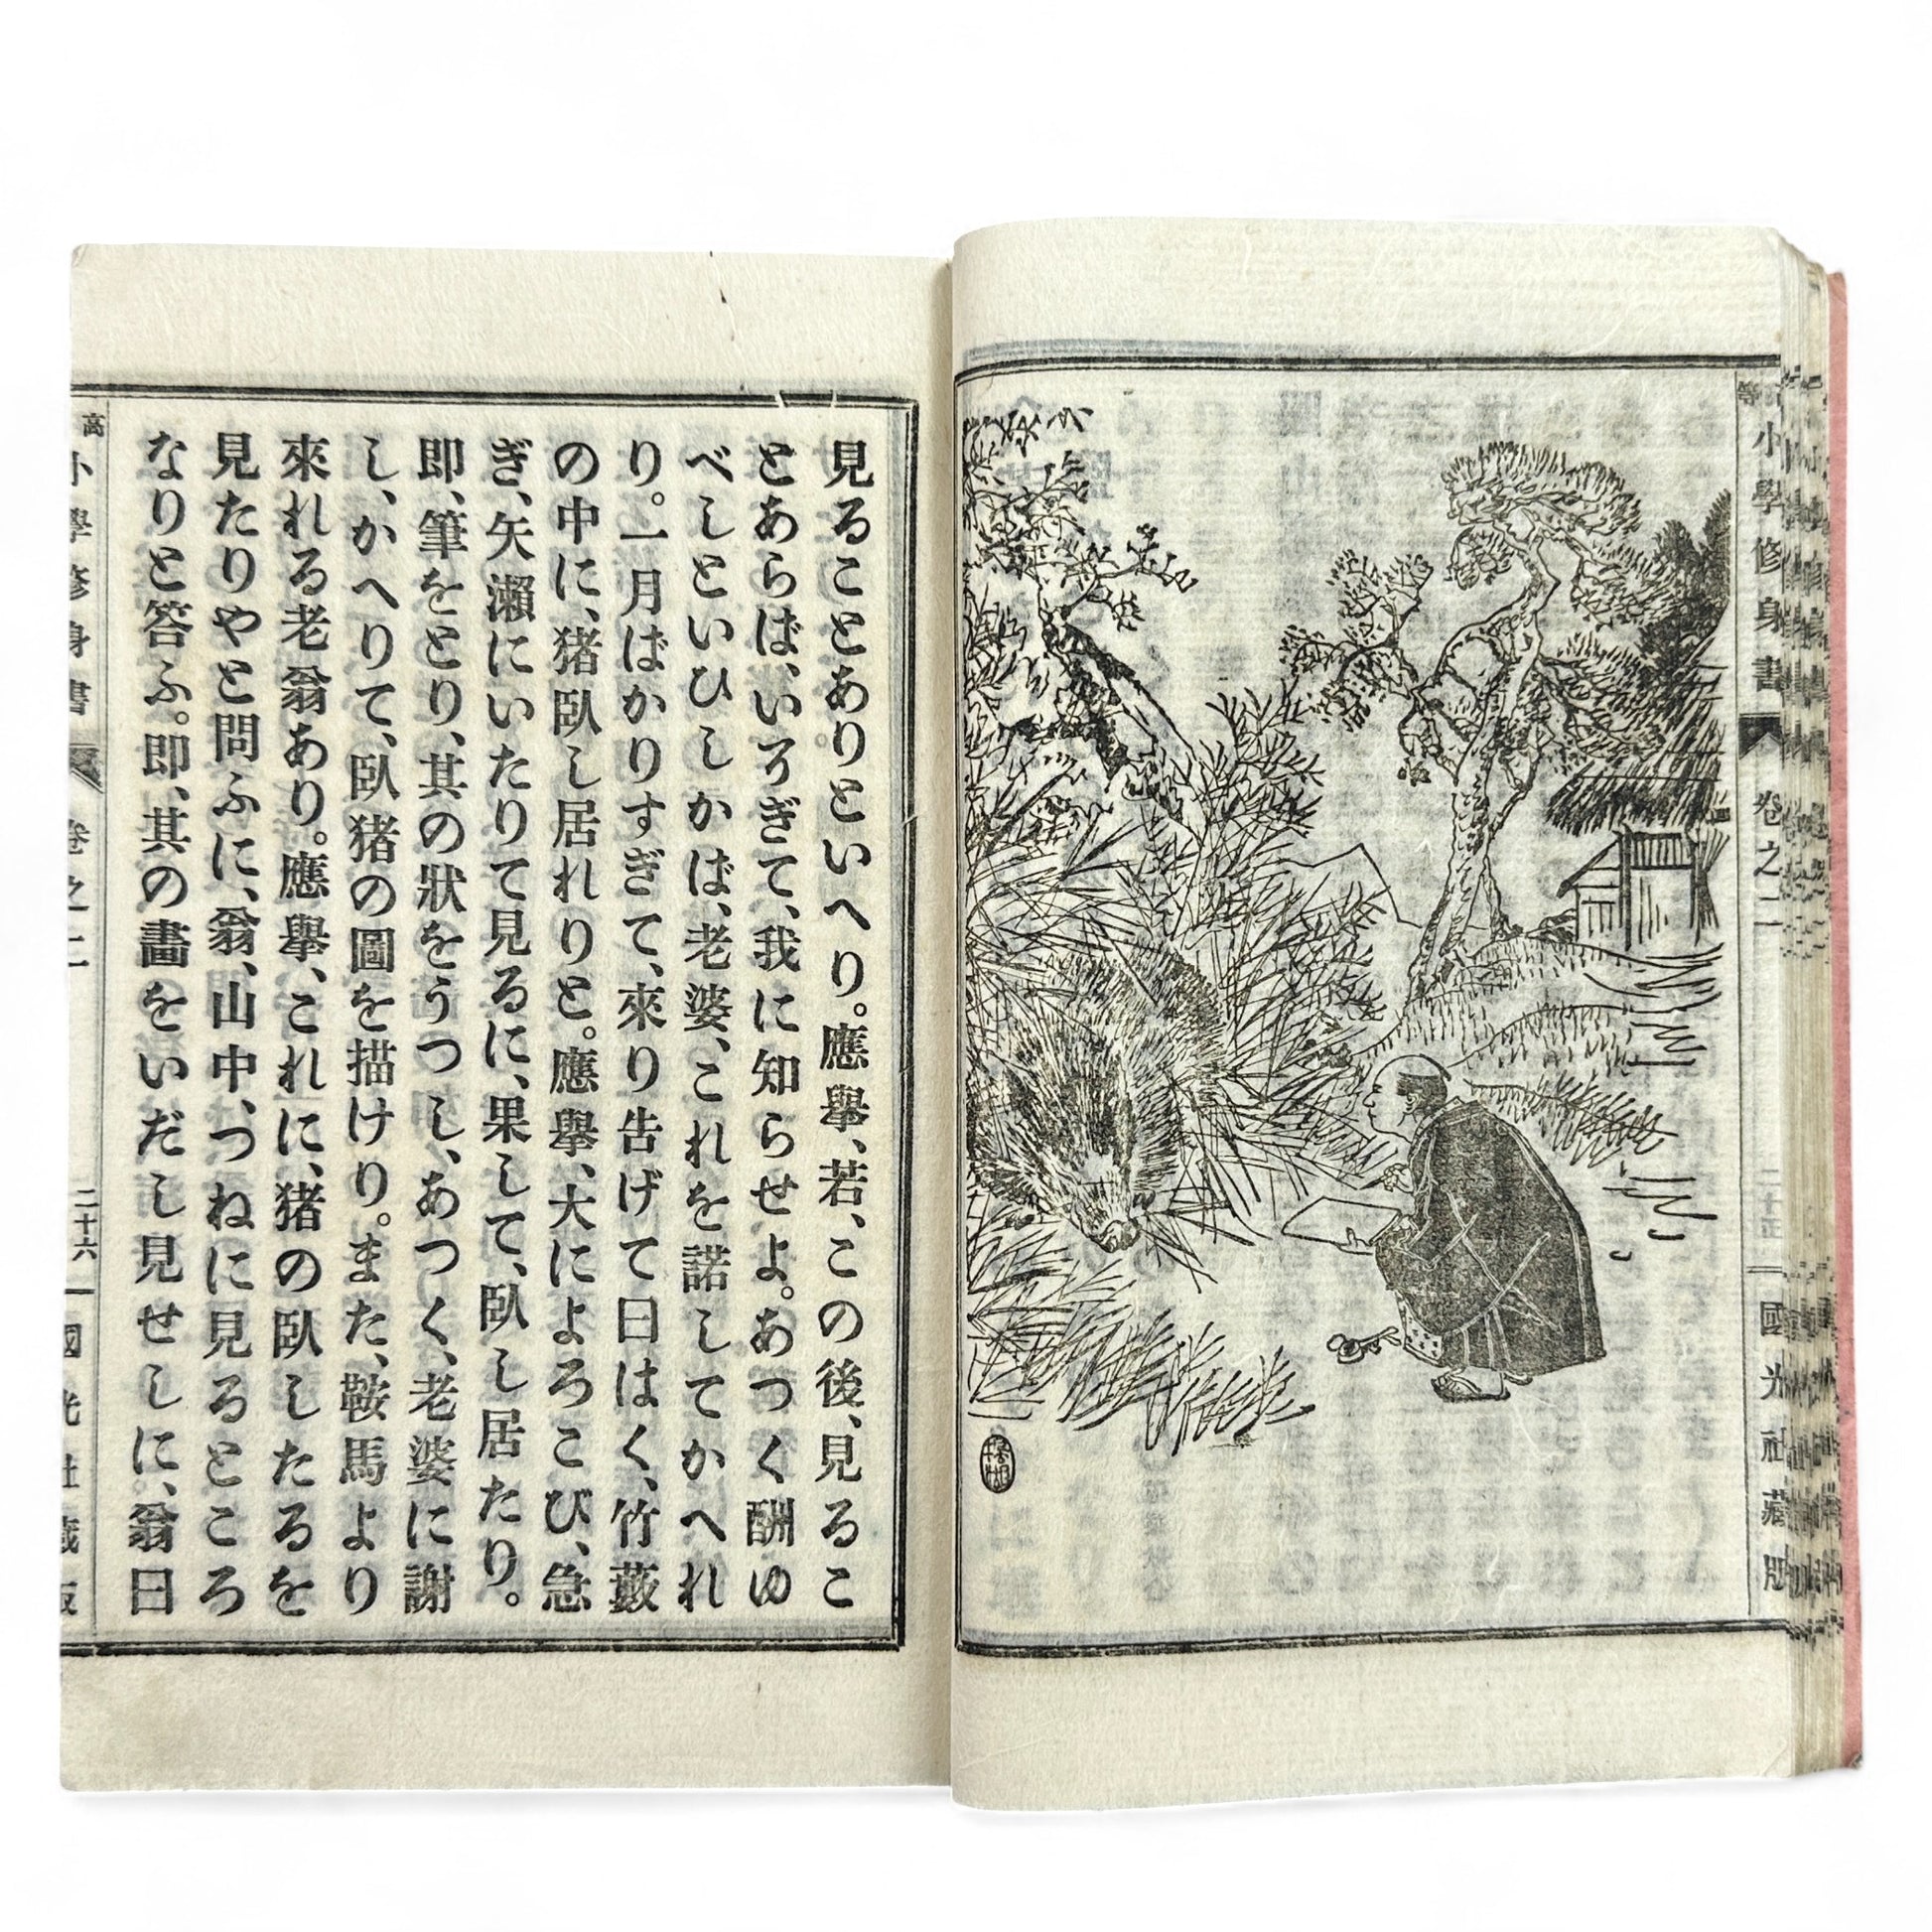 小學修身書 卷之二 國光社藏版
見ることありといへり。應擧、若、この後、見るこ
とあらば、いそぎて、我に知らせよ。あつく酬ゆ
べしといひしかば、老婆、これを諾してかへれ
り。一月ばかりすぎて、來り告げて曰はく、竹藪
の中に、猪臥し居れりと。應擧、大によろこび、急
ぎ、矢瀨にいたりて見るに、果して、臥し居たり。
即、筆をとり、其の狀をうつし、あつく、老婆に謝
し、かへりて、臥猪の圖を描けり。また、鞍馬より
來れる老翁あり。應擧、これに、猪の臥したるを
見たりやと問ふに、翁、山中、つねに見るところ
なりと答ふ。即、其の畫をいだし見せしに、翁曰
高 小學修身書 卷之二 二十六 國光社藏版